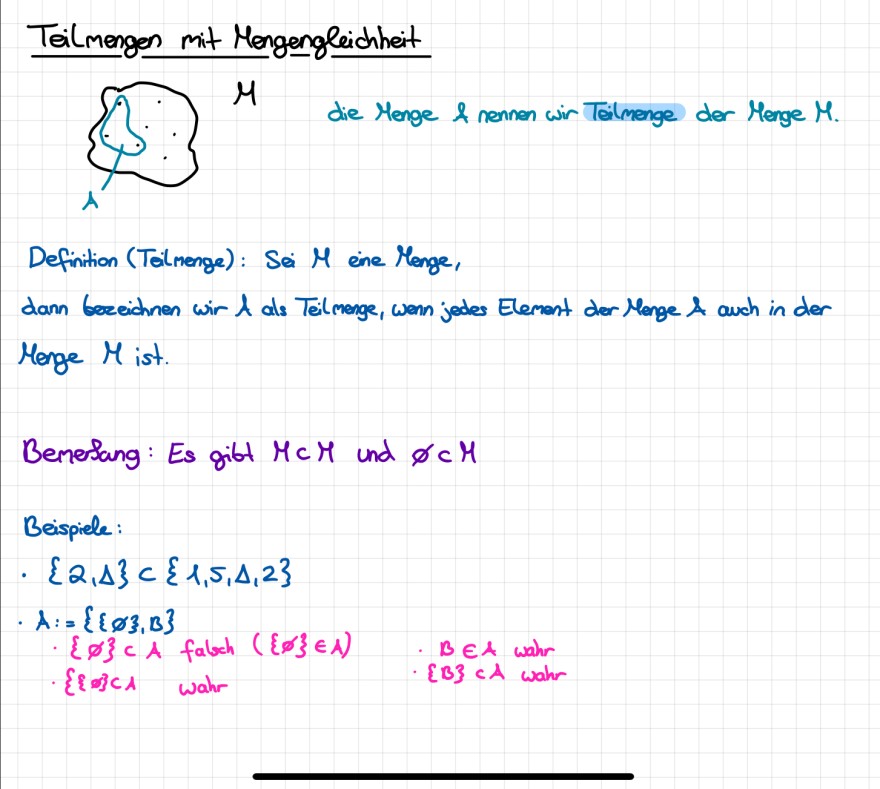 Teilmengen mit Mengengleichheit
M
die Menge A nennen wir Teilmenge der Menge M.
A
Definition (Teilmenge): Sei M eine Menge,
dann bezeichnen wir A als Teilmenge, wenn jedes Element der Menge A auch in der
Menge M ist.
Bemerkang: Es gibt M ⊂ M und ∅ ⊂ M
Beispiele:
· {2,Δ} ⊂ {1,5,Δ,2}
· A := {{∅},B}
· {∅} ⊂ A falsch ({∅} ∈ A)
· B ∈ A wahr
· {{∅} ⊂ A wahr
· {B} ⊂ A wahr